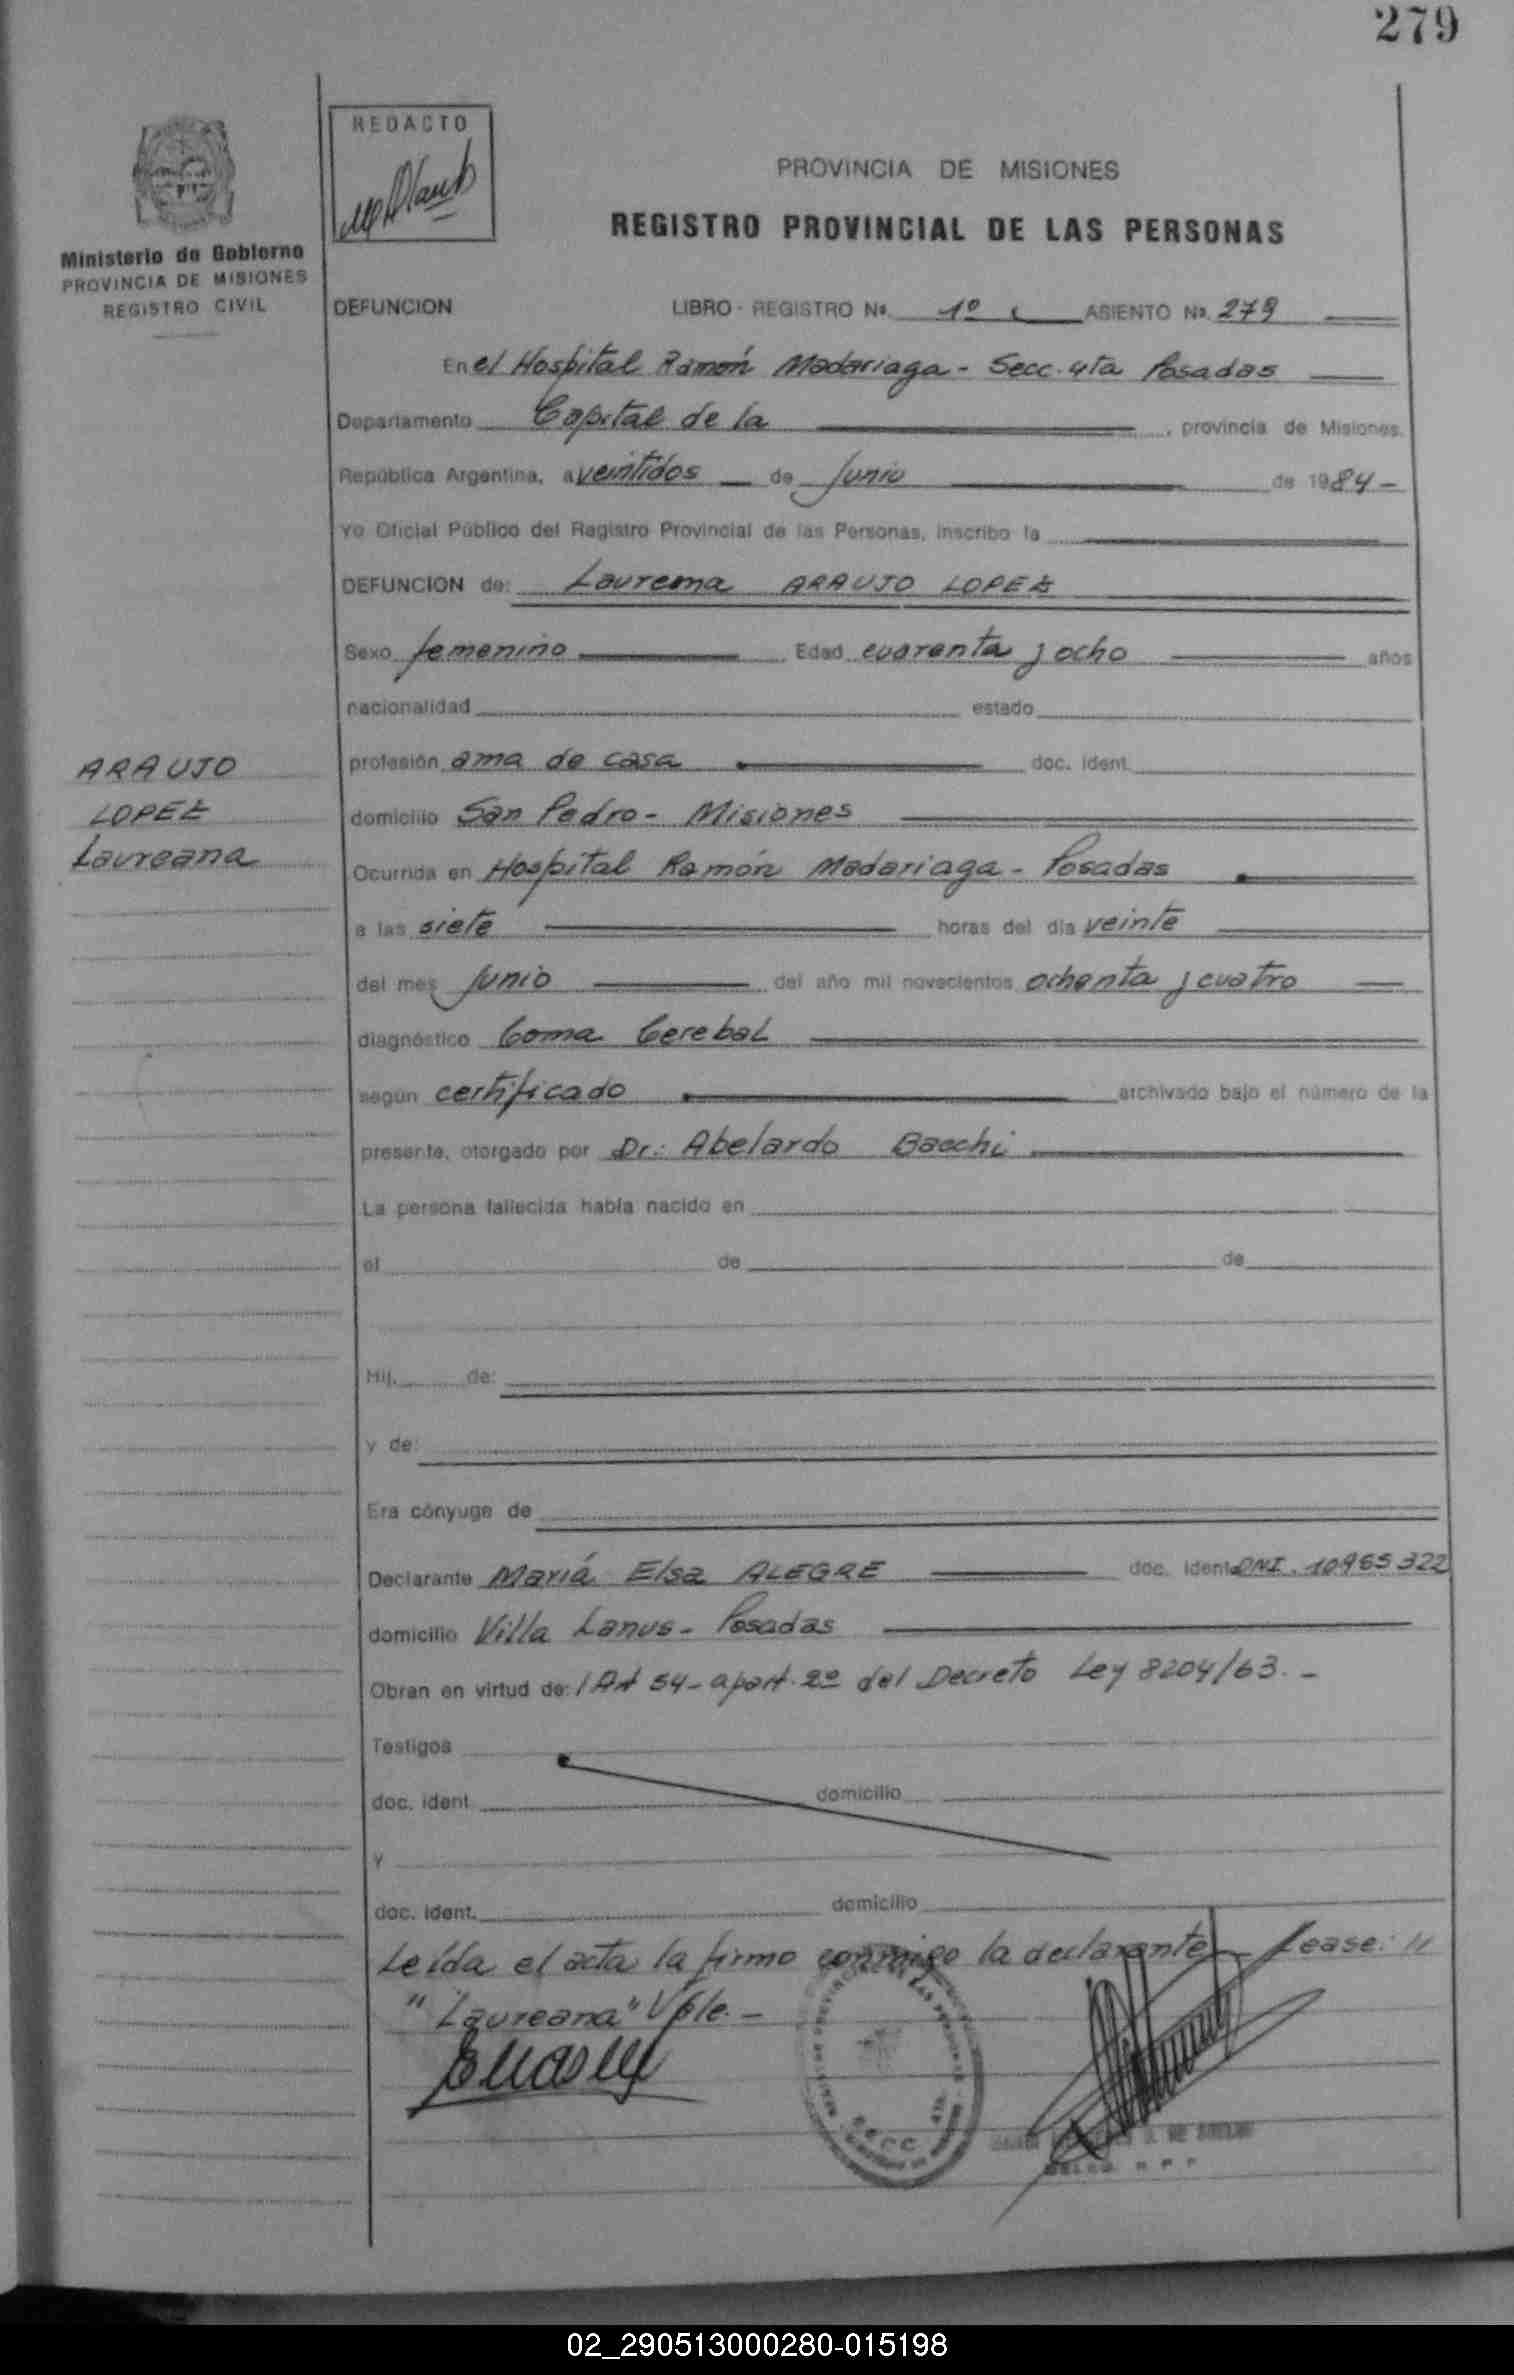 279
REDACTO
Ministerio de Gobierno
PROVINCIA DE MISIONES
REGISTRO CIVIL
PROVINCIA DE MISIONES
REGISTRO PROVINCIAL DE LAS PERSONAS
DEFUNCION LIBRO - REGISTRO No. 1º ASIENTO No. 279
En el Hospital Ramón Madariaga - Secc. 4ta Posadas
Departamento Capital de la , provincia de Misiones.
República Argentina, a veintidos de Junio de 1984 -
Yo Oficial Público del Registro Provincial de las Personas, inscribo la
DEFUNCION de: Laurema ARAUJO LOPEZ
Sexo femenino Edad cuarenta y ocho años
nacionalidad estado
profesión ama de casa doc. ident.
domicilio San Pedro - Misiones
ARAUJO
LOPEZ
Laureana
Ocurrida en Hospital Ramón Madariaga - Posadas
a las siete horas del día veinte
del mes Junio del año mil novecientos ochenta y cuatro
diagnóstico Coma Cerebal
según certificado archivado bajo el número de la
presente, otorgado por Dr.: Abelardo Bacchi
La persona fallecida había nacido en
el de de
Hij. de:
y de:
Era cónyuge de
Declarante Mariá Elsa ALEGRE doc. ident. DNI. 10965322
domicilio Villa Lanus - Posadas
Obran en virtud de: l Art 54 - apart. 2º del Decreto Ley 8204/63. -
Testigos
doc. ident. domicilio
y
doc. ident. domicilio
Leída el acta la firmo conmigo la declarante - Lease: "
"Laureana" Vale. -
SECC. 4ta.
02_290513000280-015198